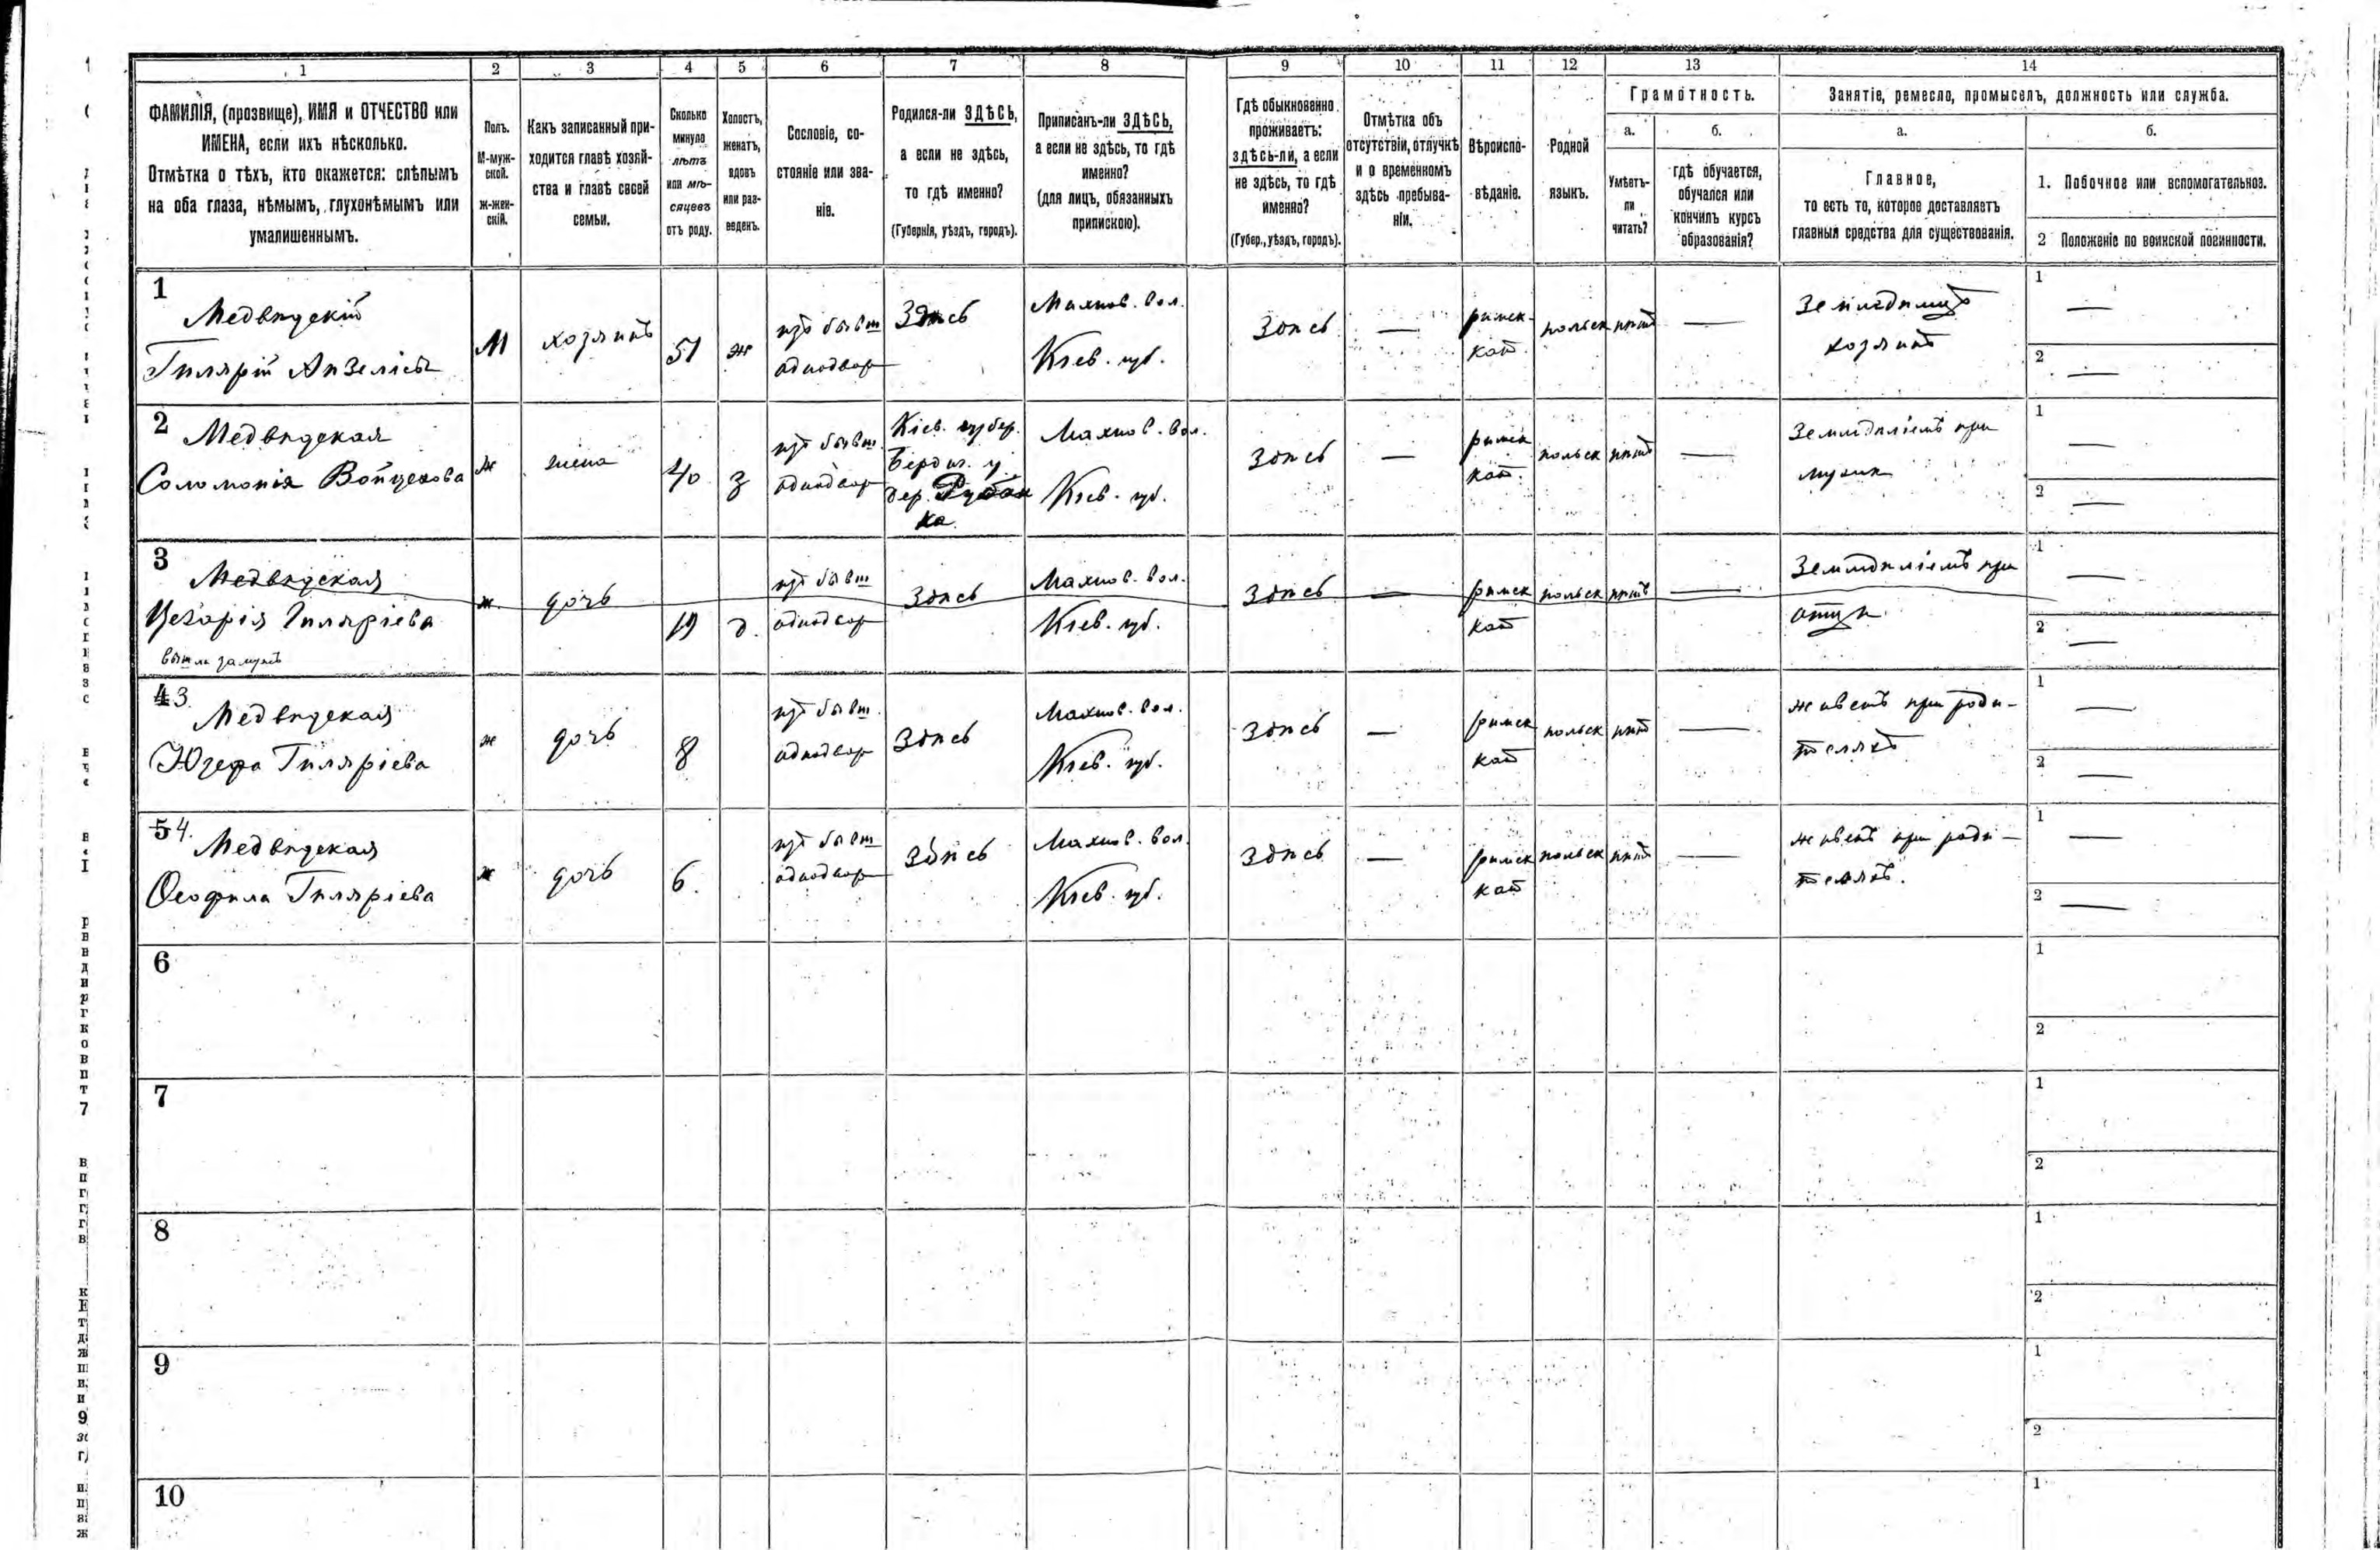 1 2 3 4 5 6 7 8 9 10 11 12 13 14
ФАМИЛІЯ, (прозвище), ИМЯ и ОТЧЕСТВО или
ИМЕНА, если ихъ нѣсколько.
Отмѣтка о тѣхъ, кто окажется: слѣпымъ
на оба глаза, нѣмымъ, глухонѣмымъ или
умалишеннымъ.
Полъ.
М-муж-
ской.
ж-жен-
скій.
Какъ записанный при-
ходится главѣ хозяй-
ства и главѣ своей
семьи.
Сколько
минуло
лѣтъ
или мѣ-
сяцевъ
отъ роду.
Холостъ,
женатъ,
вдовъ
или раз-
веденъ.
Сословіе, со-
стояніе или зва-
ніе.
Родился-ли ЗДѢСЬ,
а если не здѣсь,
то гдѣ именно?
(Губернія, уѣздъ, городъ).
Приписанъ-ли ЗДѢСЬ,
а если не здѣсь, то гдѣ
именно?
(для лицъ, обязанныхъ
припискою).
Гдѣ обыкновенно
проживаетъ:
здѣсь-ли, а если
не здѣсь, то гдѣ
именно?
(Губер., уѣздъ, городъ).
Отмѣтка объ
отсутствіи, отлучкѣ
и о временномъ
здѣсь пребыва-
ніи.
Вѣроиспо-
вѣданіе.
Родной
языкъ.
Грамотность.
а.
Умѣетъ-
ли
читать?
б.
гдѣ обучается,
обучался или
кончилъ курсъ
образованія?
Занятіе, ремесло, промыселъ, должность или служба.
а.
Главное,
то есть то, которое доставляетъ
главныя средства для существованія.
б.
1. Побочное или вспомогательное.
2 Положеніе по воинской повинности.
1
Медвѣдскій
Гилярій Анзеліевъ
М
хозяинъ
51
ж
изъ бывш
однодвор
Здѣсь
Махнов. вол.
Кіев. губ.
Здѣсь
—
римск.
кат.
польск
нѣтъ
—
Земледѣлецъ
хозяинъ
1 —
2 —
2
Медвѣдская
Соломонія Войцехова
ж
жена
40
з
изъ бывш.
однодвор
Кіев. губер.
Бердич. у.
дер.
ка
Махнов. вол.
Кіев. губ.
Здѣсь
—
римск
кат.
польск
нѣтъ
—
Земледѣліемъ при
мужѣ
1 —
2 —
3
Медвѣдская
Цезарія Гиляріева
вышла замужъ
ж.
дочь
19
д.
изъ бывш
однодвор
Здѣсь
Махнов. вол.
Кіев. губ.
Здѣсь
—
римск
кат
польск
нѣтъ
—
Земледѣліемъ при
отцѣ
1 —
2 —
4 3.
Медвѣдская
Юзефа Гиляріева
ж
дочь
8
изъ бывш.
однодвор
Здѣсь
Махнов. вол.
Кіев. губ.
Здѣсь
—
римск
кат
польск
нѣтъ
—
живетъ при роди-
теляхъ
1 —
2 —
5 4.
Медвѣдская
Ѳеофила Гиляріева
ж
дочь
6.
изъ бывш
однодвор
Здѣсь
Махнов. вол.
Кіев. губ.
Здѣсь
—
римск
кат
польск
нѣтъ
—
живетъ при роди-
теляхъ.
1 —
2 —
6
1
2
7
1
2
8
1
2
9
1
2
10
1